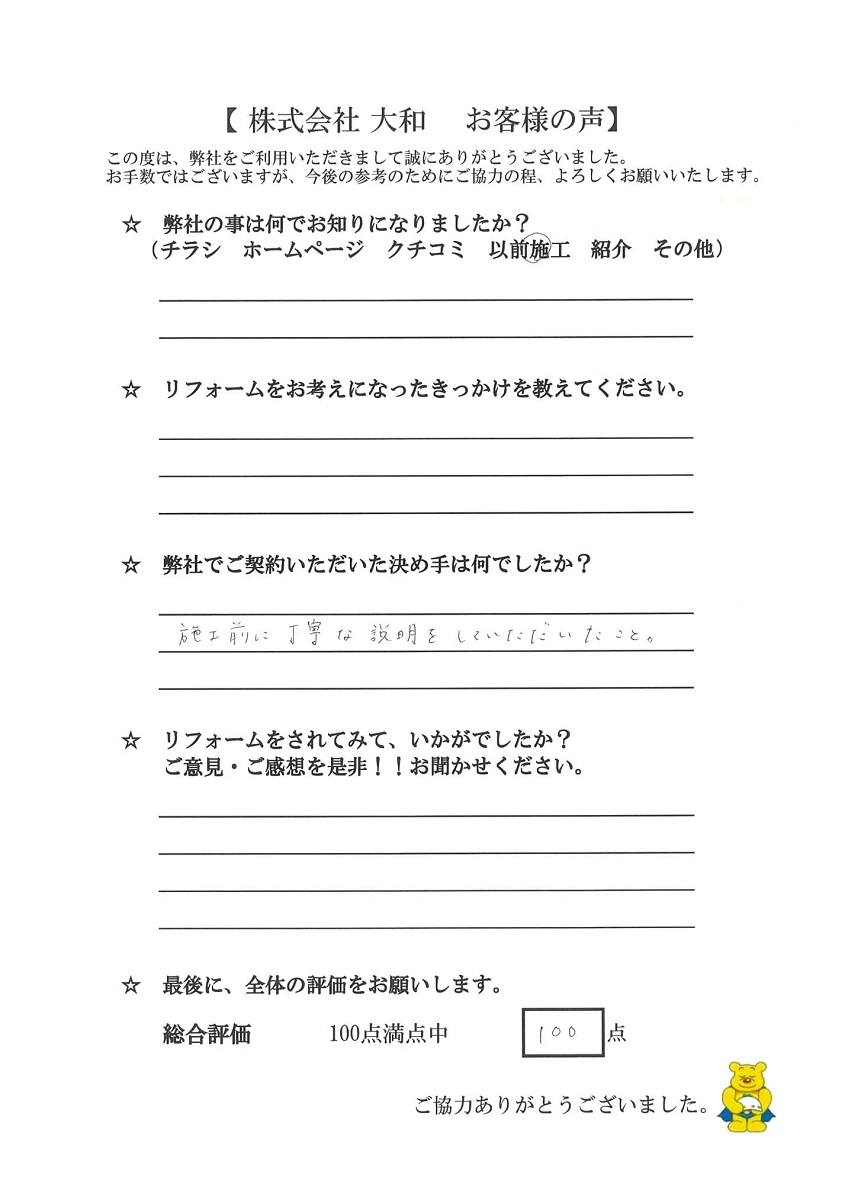 【 株式会社 大和　お客様の声】
この度は、弊社をご利用いただきまして誠にありがとうございました。
お手数ではございますが、今後の参考のためにご協力の程、よろしくお願いいたします。
☆　弊社の事は何でお知りになりましたか？
（チラシ　ホームページ　クチコミ　以前施工　紹介　その他）
☆　リフォームをお考えになったきっかけを教えてください。
☆　弊社でご契約いただいた決め手は何でしたか？
施工前に丁寧な説明をしていただいたこと。
☆　リフォームをされてみて、いかがでしたか？
ご意見・ご感想を是非！！お聞かせください。
☆　最後に、全体の評価をお願いします。
総合評価　100点満点中　100点
ご協力ありがとうございました。